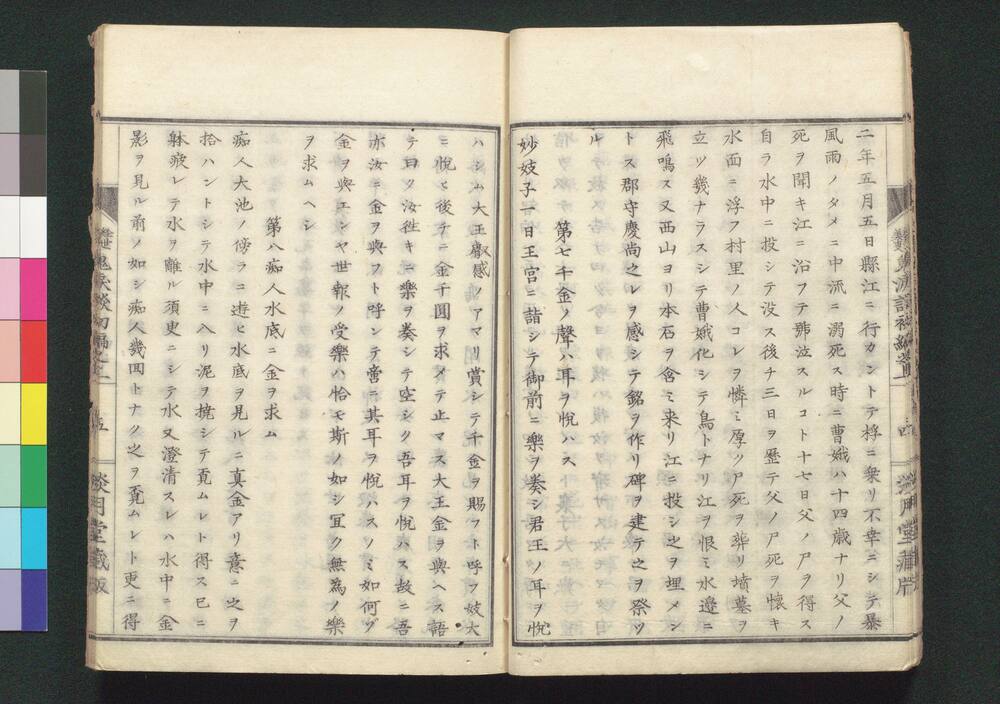 二年五月五日縣江ニ行カントテ桴ニ乗リ不幸ニシテ暴
風雨ノタメニ中流ニ溺死ス時ニ曹娥ハ十四歳ナリ父ノ
死ヲ聞キ江ニ沿フテ號泣スルコト十七日父ノ尸ヲ得ス
自ラ水中ニ投シテ没ス後チ三日ヲ歴テ父ノ尸死ヲ懐キ
水面ニ浮フ村里ノ人コレヲ憐ミ厚ツク死ヲ葬リ墳墓ヲ
立ツ幾ナラスシテ曹娥化シテ鳥トナリ江ヲ恨ミ水邉ニ
飛鳴ス又西山ヨリ木石ヲ含ミ来リ江ニ投シ之ヲ埋メン
トス郡守慶尚之レヲ感シテ銘ヲ作リ碑ヲ建テ之ヲ祭ツ
ル
第七千金ノ聲ハ耳ヲ悦ハス
妙妓子一日王宮ニ詣シテ御前ニ樂ヲ奏シ君王ノ耳ヲ悦
ハシム大王叡感ノアマリ賞シテ千金ヲ賜フト呼フ妓大
ニ悦ヒ後チニ金千圓ヲ求メテ止マス大王金ヲ與ヘス語
テ曰ク汝徃キニ樂ヲ奏シテ空シク吾耳ヲ悦ハス故ニ吾
亦汝ニ金ヲ與フト呼ンテ啻ニ其耳ヲ悦ハスノミ如何ゾ
金ヲ與エンヤ世報ノ受樂ハ恰モ斯ノ如シ冝ク無為ノ樂
ヲ求ムヘシ
第八痴人水底ニ金ヲ求ム
痴人大池ノ傍ラニ遊ヒ水底ヲ見ルニ真金アリ意ニ之ヲ
拾ハントシテ水中ニ入リ泥ヲ撓シテ覓ムレト得ス已ニ
躰疲レテ水ヲ離ル須更ニシテ水又澄清スレハ水中ニ金
影ヲ見ル前ノ如シ痴人幾回トナク之ヲ覓ムレト更ニ得
談初編
五
淡明堂蔵版